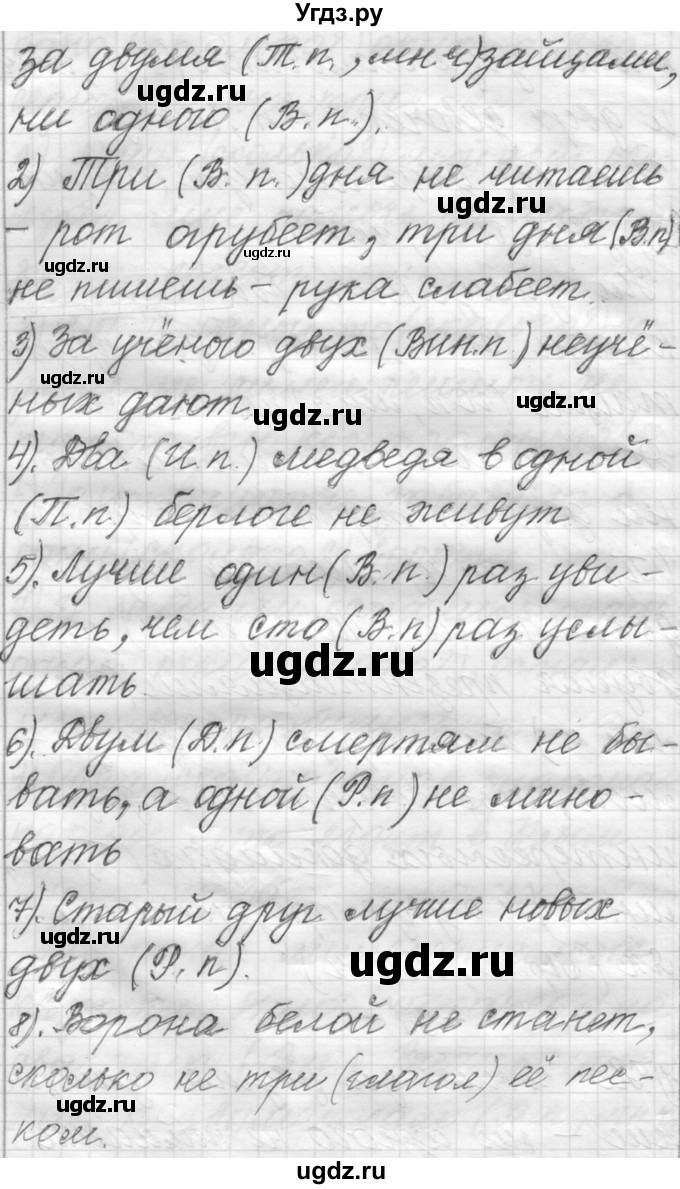 Угдз.ру
за двумя (Т.п., мн ч) зайцами,
ugdz.ru
ни одного (В.п.).
2) Три (В. п.) дня не читаешь
ugdz.ru
- рот огрубеет, три дня (В.п)
ugdz.ru
не пишешь - рука слабеет.
3) За учёного двух (Вин.п) неучё-
ugdz.ru
ugdz.ru
ных дают
ugdz.ru
4). Два (И.п.) медведя в одной
(П.п.) берлоге не живут
5). Лучше один (В.п.) раз уви-
деть, чем сто (В.п) раз услы-
ugdz.ru
шать.
6). Двум (Д.п) смертям не бы-
вать, а одной (Р.п) не мино-
вать
7). Старый друг лучше новых
ugdz.ru
двух (Р.п).
ugdz.ru
8). Ворона белой не станет,
сколько не три (глагол) её пес-
ugdz.ru
ком.
ugdz.ru